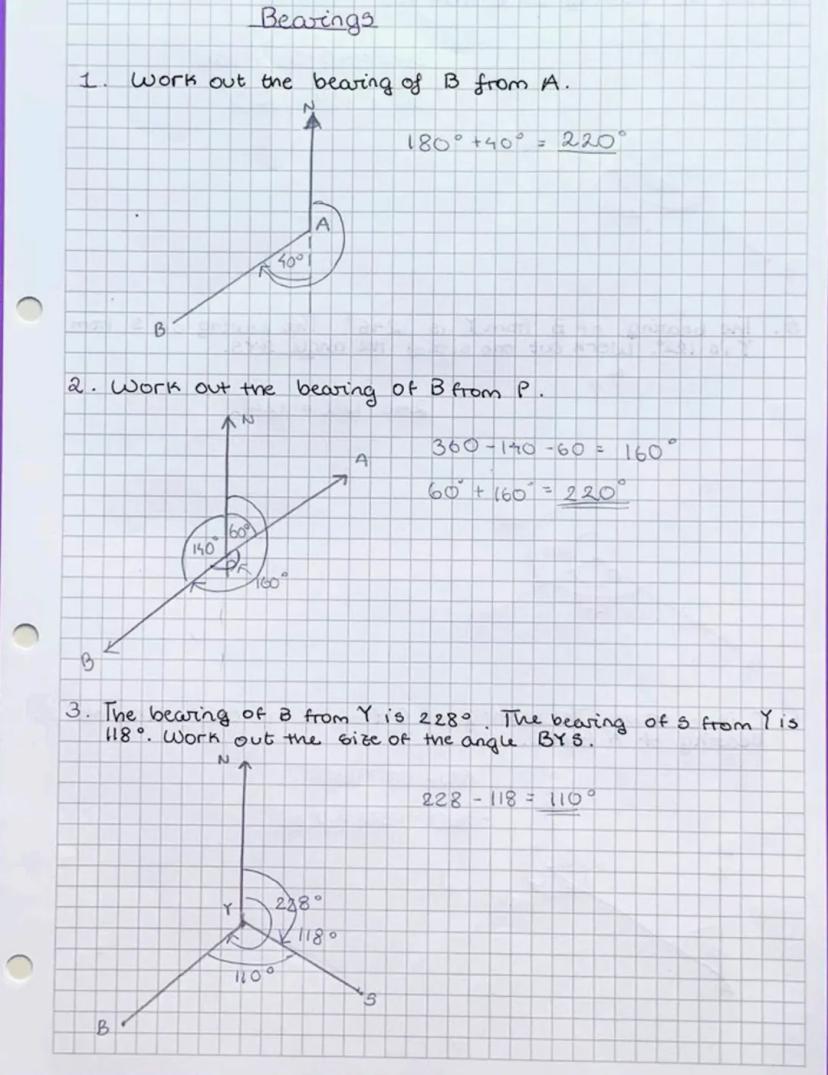 Bearings
1. Work out the bearing of B from A.
N
180° + 40° = 220°
A
40°
B
2. Work out the bearing of B from P.
N
360 - 140 - 60 = 160°
A
60° + 160° = 220°
60°
140°
P
160°
B
3. The bearing of B from Y is 228°. The bearing of S from Y is
118°. Work out the size of the angle BYS.
N
228 - 118 = 110°
Y
228°
118°
110°
S
B